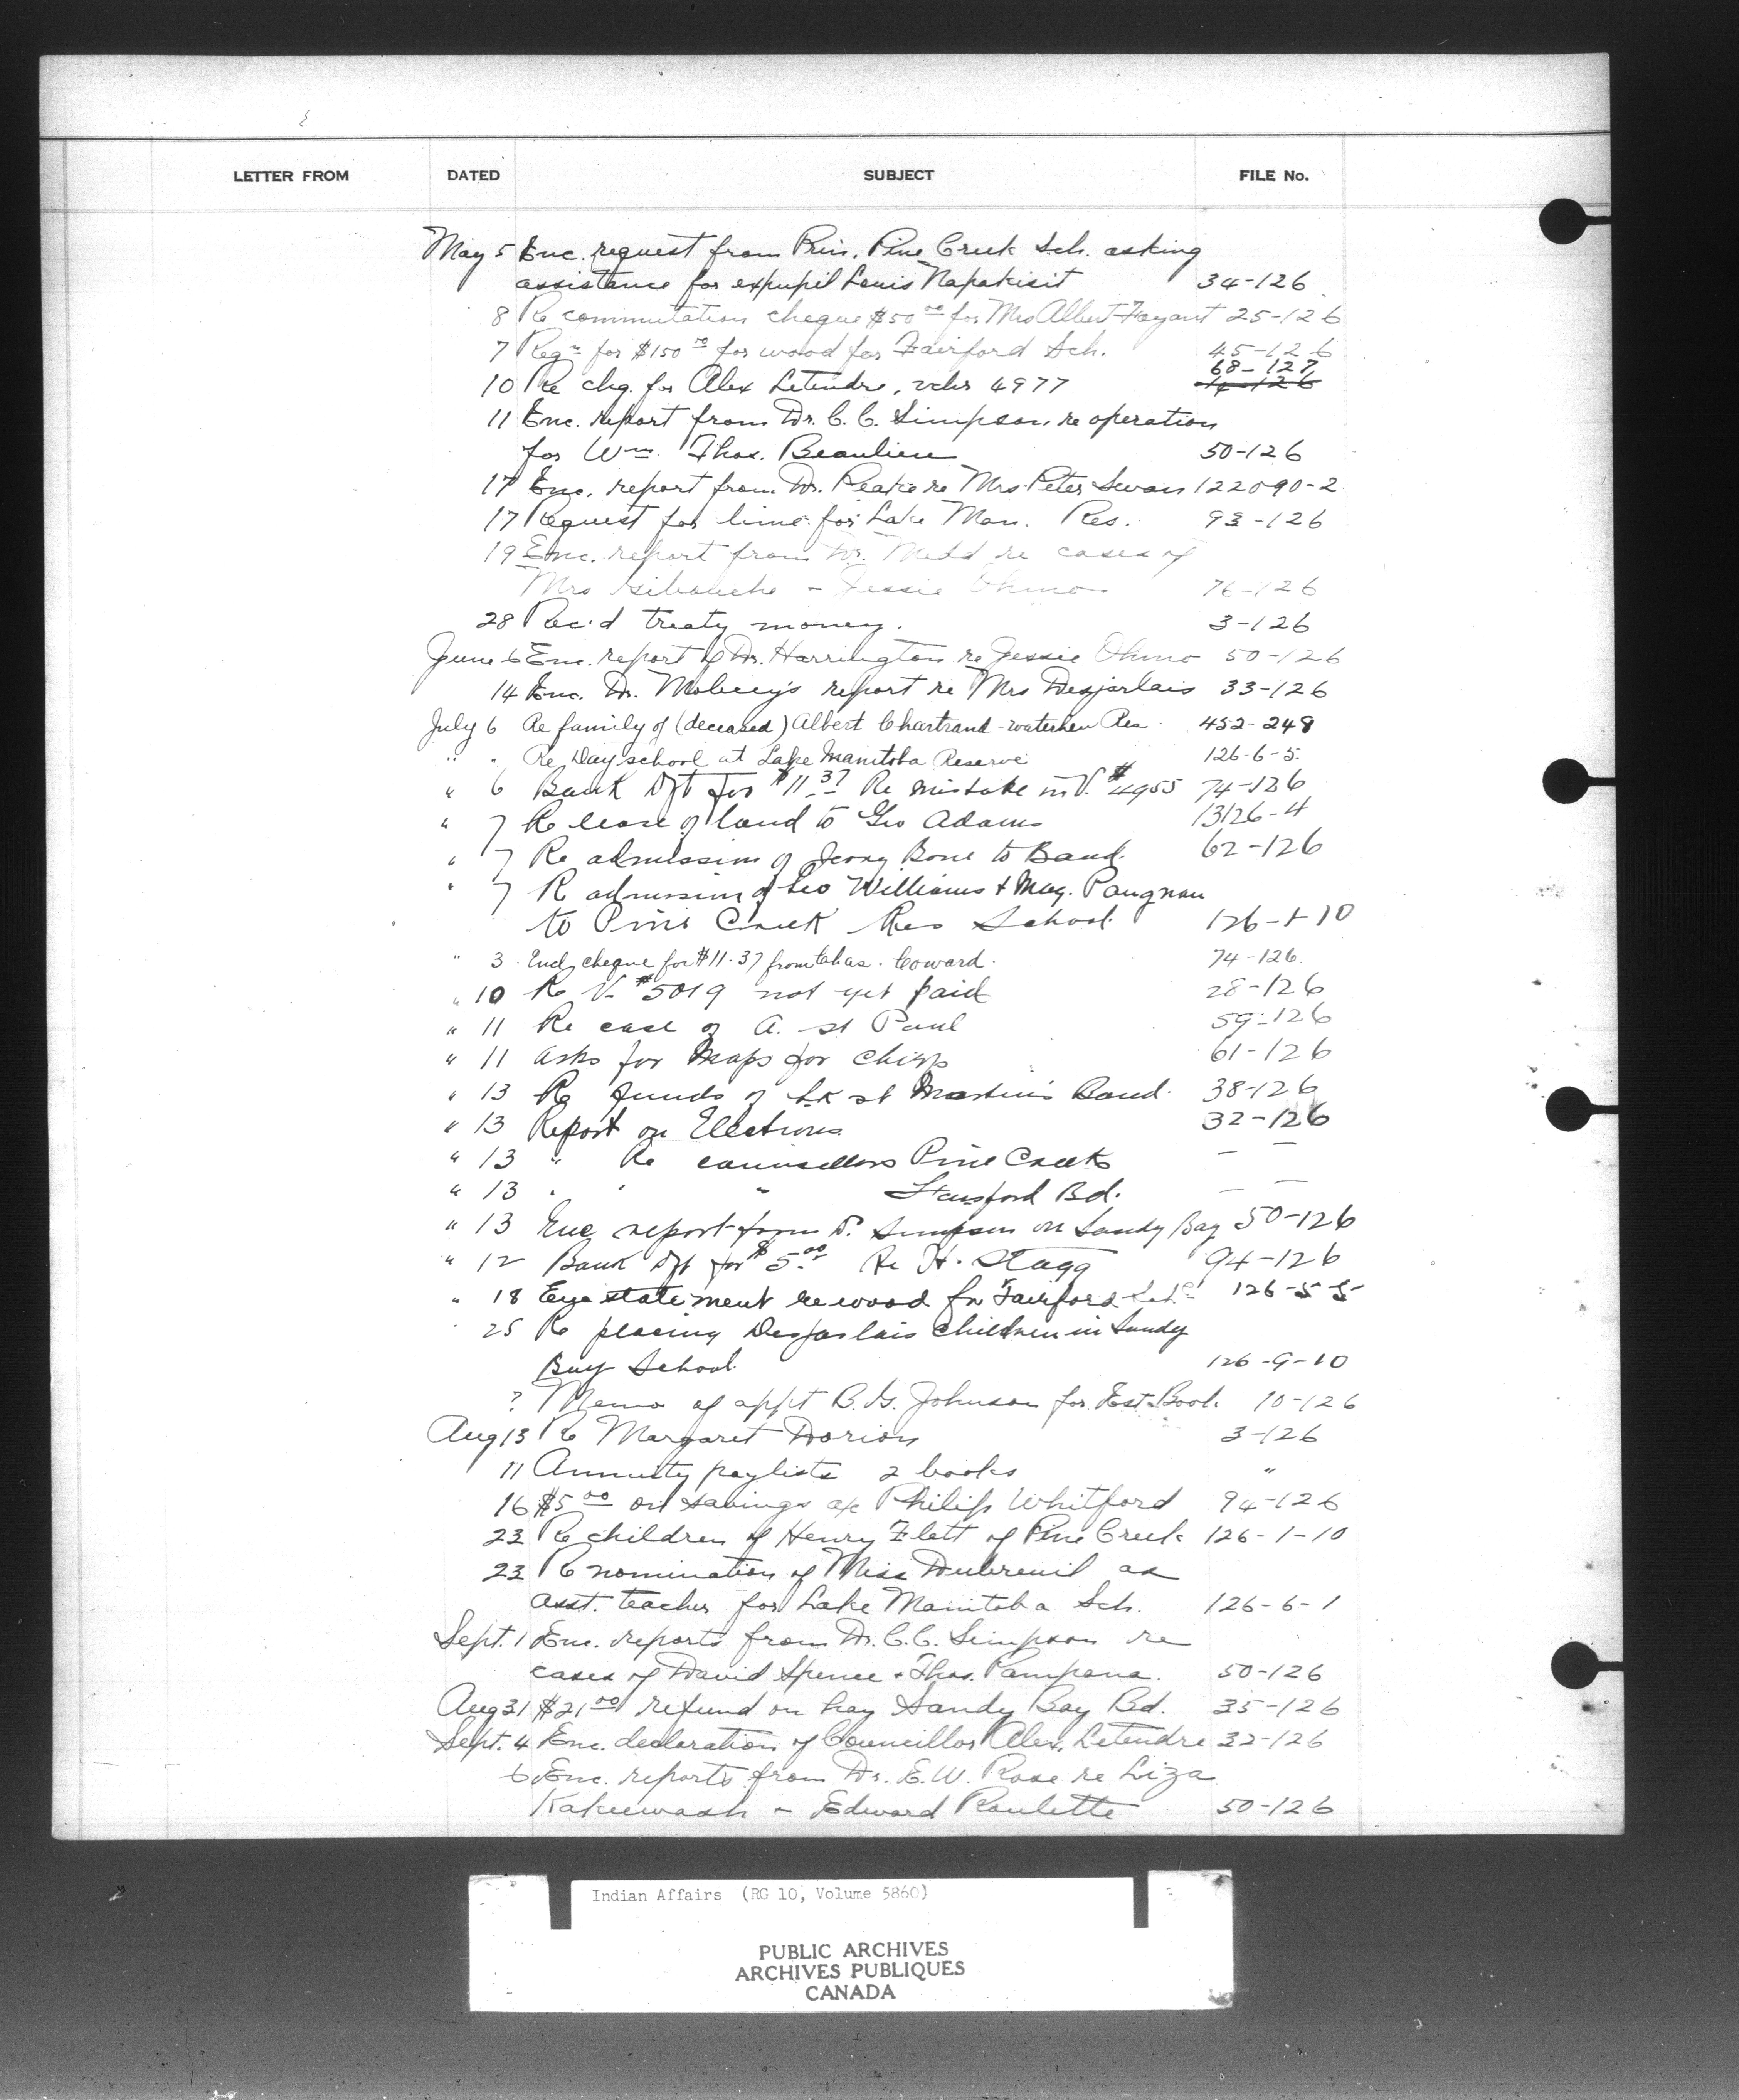 LETTER FROM DATED SUBJECT FILE No.
May 5 Enc. request from Prin. Pine Creek Sch. asking
assistance for expupil Louis Napakisit 34-126
8 Re commutation cheque $50.00 for Mrs Albert Fayant 25-126
7 Reqn for $150.00 for wood for Fairford Sch. 45-126
68-127
10 Re chq. for Alex Letendre, vchr 4977 14-126
11 Enc. report from Dr. C. C. Simpson, re operation
for Wm. Thos. Beaulieu 50-126
17 Enc. report from Dr. Peake re Mrs Peter Swan 122090-2
17 Request for lime for Lake Man. Res. 93-126
19 Enc. report from Dr. re cases of
Mrs - Jessie Ohmo 76-126
28 Rec'd treaty money. 3-126
June 6 Enc. report of Dr. Harrington re Jessie Ohmo 50-126
14 Enc. Dr. report re Mrs Desjarlais 33-126
July 6 Re family of (deceased) Albert Chartrand - waterhen Res. 452-249
" " Re Day school at Lake Manitoba Reserve 126-6-5
" 6 Bank Dft for $11.37 Re mistake in V. #4955 74-126
" 7 Re lease of land to Geo Adams 13126-4
" 7 Re admission of Bone to Band. 62-126
" 7 R admission of Leo Williams & Mag. Paugnan
to Pine Creek Res School. 126-1-10
" 3 Encl. cheque for $11.37 from Chas. Coward. 74-126.
" 10 Re V. #5019 not yet paid 28-126
" 11 Re case of A. St Paul 59-126
" 11 asks for Maps for Chips 61-126
" 13 Re funds of Lk St Martin's Band. 38-126
" 13 Report on Elections 32-126
" 13 " Re councillors Pine Creek — —
" 13 " " " Bd. — —
" 13 Enc report from Dr. Simpson on Sandy Bay 50-126
" 12 Bank Dft for $5.00 Re H. Stagg 94-126
" 18 Enc statement re wood for Fairford Schl 126-5-5
25 Re placing Desjarlais children in Sandy
Bay School. 126-9-10
? Memo of appt B. G. Johnson for Est. Book. 10-126
Aug 13 Re Margaret Dorion 3-126
11 Annuity paylists 2 books "
16 $5.00 on savings a/c Philip Whitford 94-126
23 Re children of Henry Flett of Pine Creek 126-1-10
23 Re nomination of Miss Dubreuil as
asst. teacher for Lake Manitoba Sch. 126-6-1
Sept. 1 Enc. reports from Dr. C. C. Simpson re
cases of David Spence & Thos. Pampana. 50-126
Aug 31 $21.00 refund on hay Sandy Bay Bd. 35-126
Sept. 4 Enc. declaration of Councillor Alex. Letendre 32-126
6 Enc. reports from Dr. E. W. Rose re Liza
Kakeewash - Edward Roulette 50-126
Indian Affairs (RG 10, Volume 5860)
PUBLIC ARCHIVES
ARCHIVES PUBLIQUES
CANADA